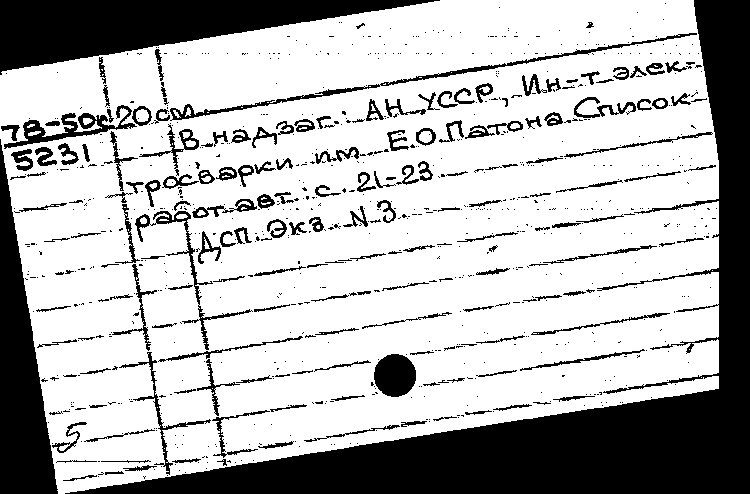 78-50к 20 см.
5231
В надзаг.: АН УССР, Ин-т элек-
тросварки им. Е.О.Патона. Список
работ авт.: с. 21-23.
ДСП. Экз. N 3.
5